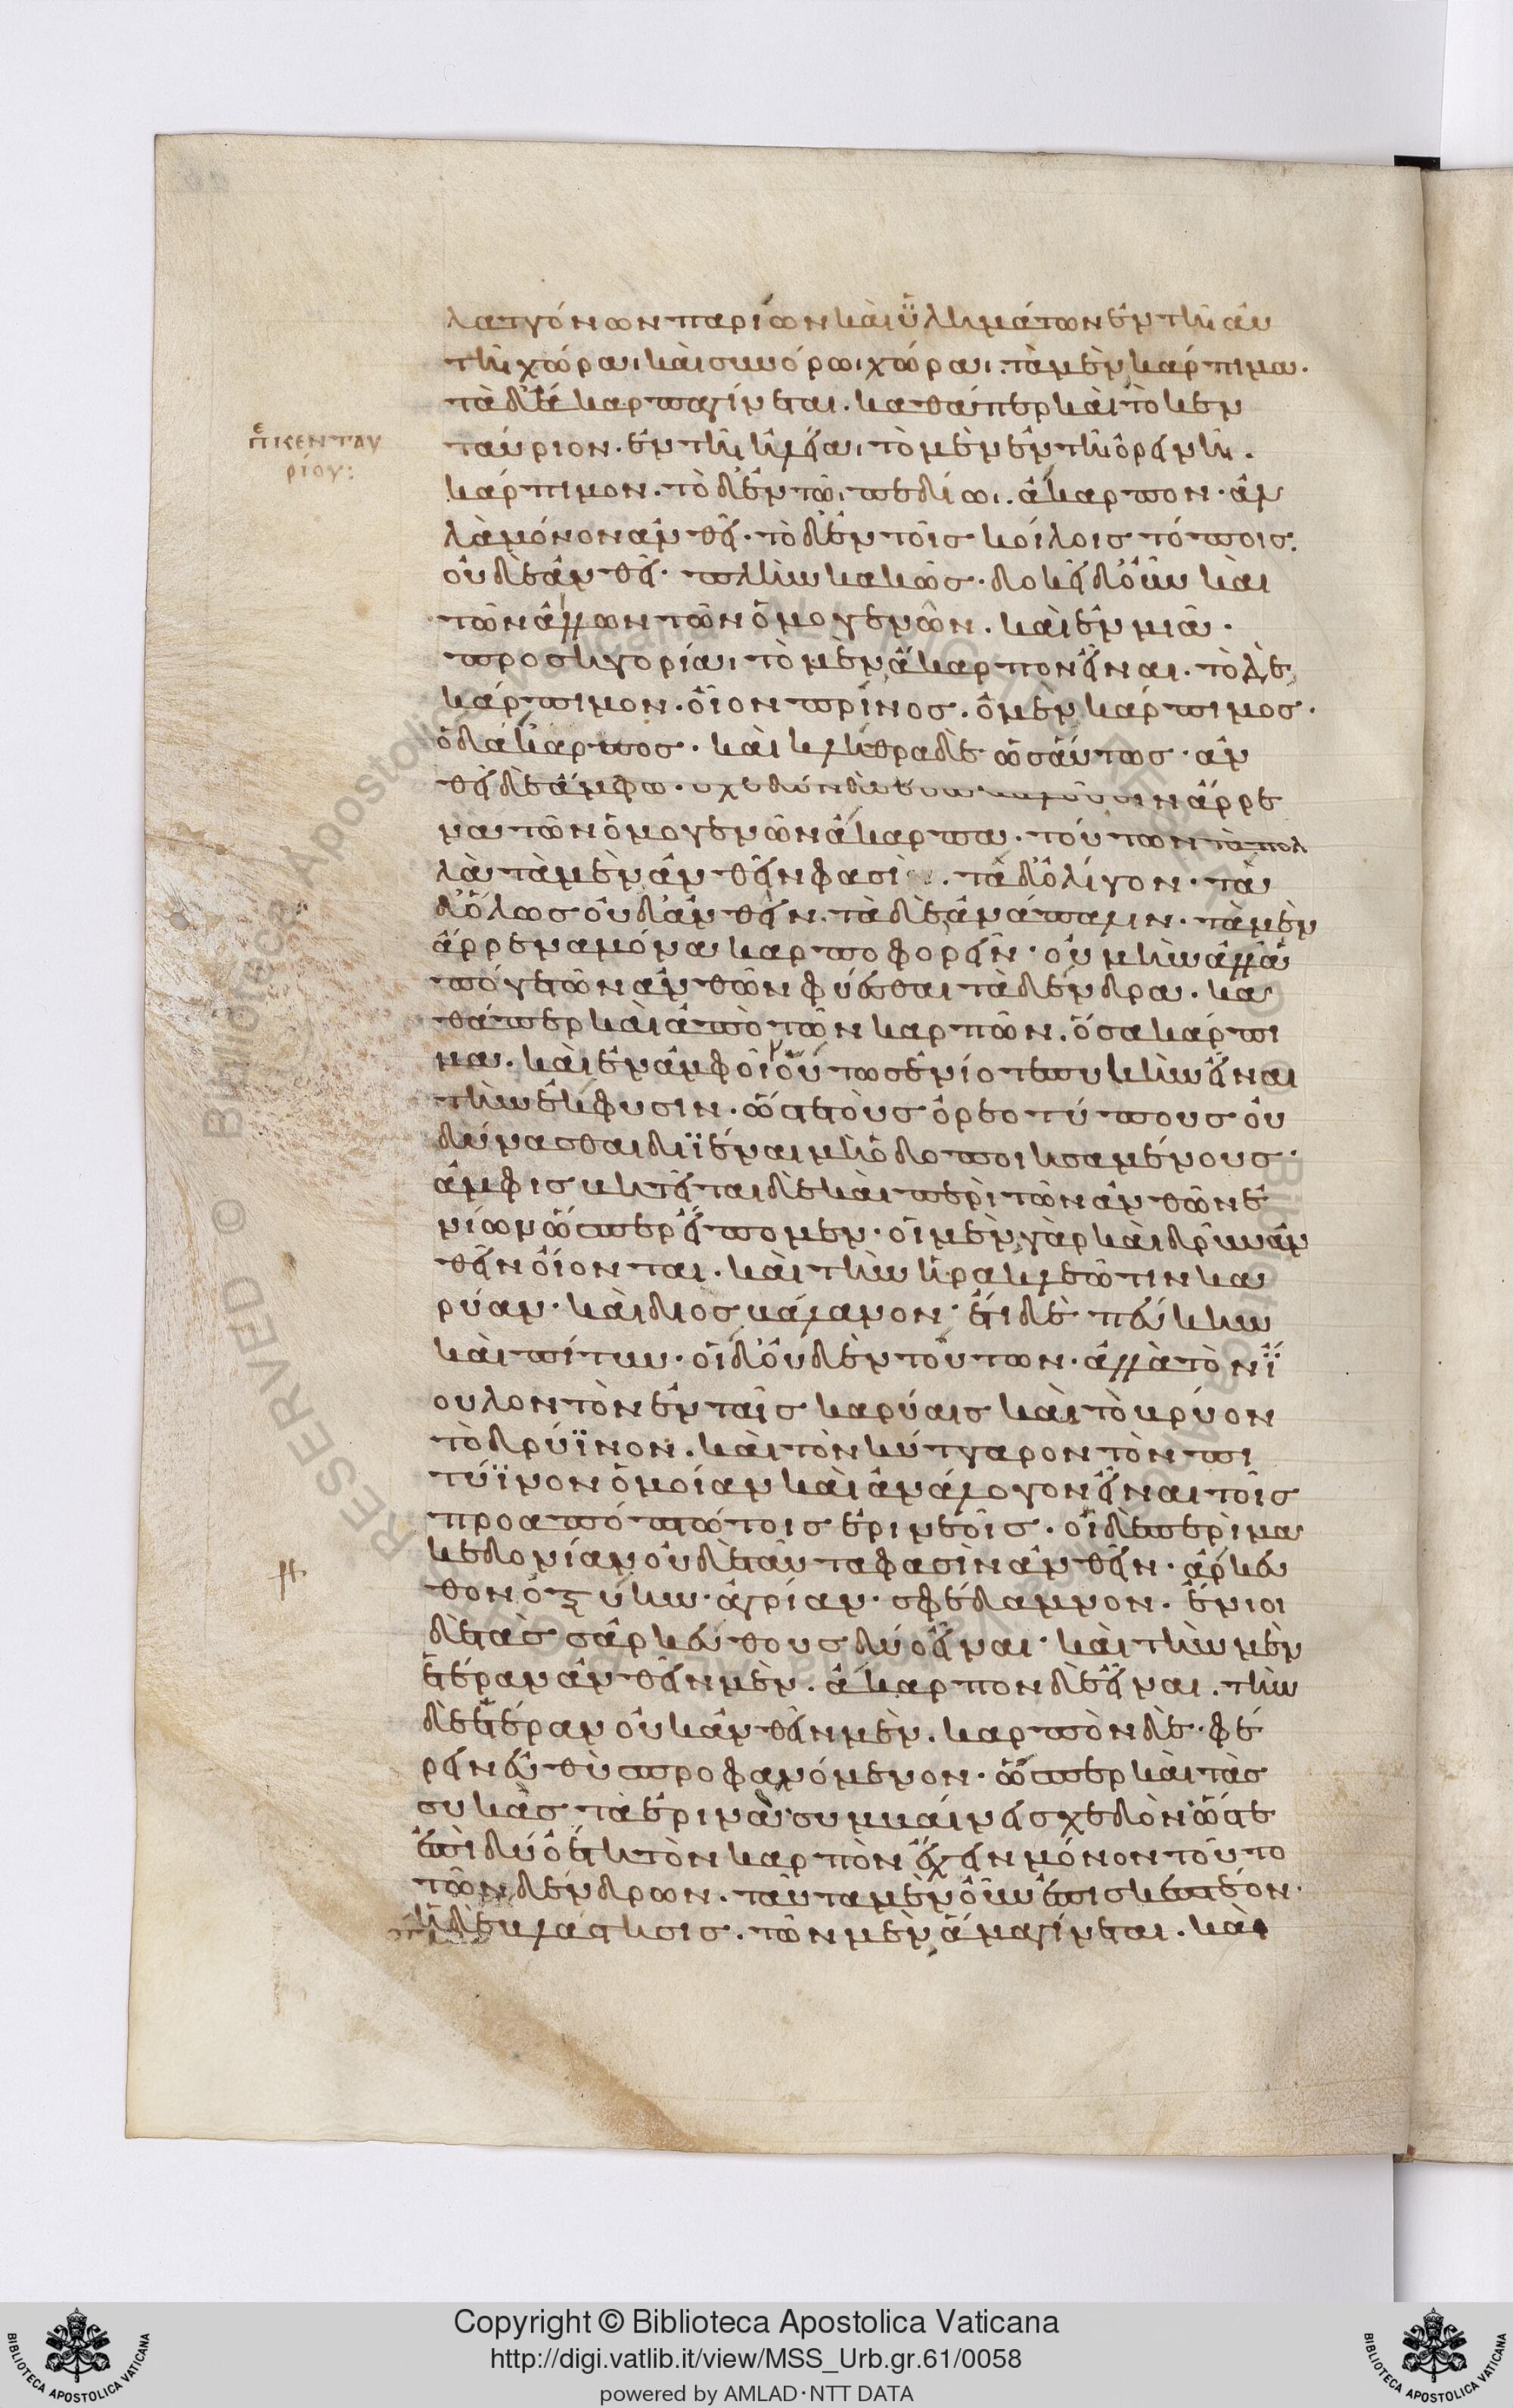 λαττόνων παρίων καὶ ὑλημάτων ἐν τῆι αὐ
τῆι χώραι καὶ συνόρωι χώραι. τὰ μὲν κάρπιμα.
τὰ δὲ ἄκαρπα γίνεται. καθάπερ καὶ τὸ κεν
ταύριον. ἐν τῆι ἠλείαι τὸ μὲν ἐν τῆι ὀρεινῆι.
κάρπιμον. τὸ δ' ἐν τῶι πεδίωι. ἄκαρπον. ἀλ
λὰ μόνον ἀνθεῖ. τὸ δ' ἐν τοῖς κοίλοις τόποις.
οὐδὲ ἀνθεῖ. πλὴν κακῶς. δοκεῖ δ' οὖν καὶ
τῶν ἄλλων τῶν ὁμογενῶν. καὶ ἐν μιᾶ.
προσηγορίαι τὸ μὲν ἄκαρπον εἶναι. τὸ δὲ
κάρπιμον. οἷον πρίνος. ὁ μὲν κάρπιμος.
ὁ δ' ἄκαρπος. καὶ κλήθρα δὲ ὡσαύτως. ἀν
θεῖ δὲ ἄμφω. σχεδὸν δὲ ὅσα καλοῦσιν ἄρρε
να τῶν ὁμογενῶν ἄκαρπα. τούτων τὰ πολ
λὰ τὰ μὲν ἀνθεῖν φασὶ . τὰ δ' ὀλίγον. τὰ
δ' ὅλως οὐδ' ἀνθεῖν. τὰ δὲ ἀνάπαλιν. τὰ μὲν
ἄρρενα μόνα καρποφορεῖν. οὐ μὴν ἀλλ' ἀ
πό γε τῶν ἀνθῶν φύεσθαι τὰ δένδρα. κα
θάπερ καὶ ἀπὸ τῶν καρπῶν. ὅσα κάρπι
μα. καὶ ἐν ἀμφοῖν οὕτως ἐνίοτε πυκνὴν εἶναι
τὴν ἔκφυσιν. ὥστε τοὺς ὀρεοτύπους οὐ
δύνασθαι διϊέναι μὴ ὁδοποιησαμένους.
ἀμφισβητεῖται δὲ καὶ περὶ τῶν ἀνθῶν ἐ
νίων ὥσπερ εἴπομεν. οἱ μὲν γὰρ καὶ δρῦν ἀν
θεῖν οἴονται. καὶ τὴν ἡρακλεῶτιν κα
ρύαν. καὶ διοσβάλανον. ἔτι δὲ πεύκην
καὶ πίτυν. οἱ δ' οὐδὲν τούτων. ἀλλὰ τὸν ἴ
ουλον τὸν ἐν ταῖς καρύαις καὶ τὸ βρύον
τὸ δρύϊνον. καὶ τὸν κύτταρον τὸν πι
τύϊνον ὁμοίαν καὶ ἀνάλογον εἶναι τοῖς
προαποπτώτοις ἐρινεοῖς. οἱ δὲ περὶ μα
κεδονίαν οὐδὲ ταῦτα φασὶν ἀνθεῖν. ἄρκευ
θον ὀξύην. ἀγρίαν. σφένδαμνον. ἔνιοι
δὲ τὰς ἀρκεύθους δύο εἶναι. καὶ τὴν μὲν
ἑτέραν ἀνθεῖν μὲν. ἄκαρπον δὲ εἶναι. τὴν
δὲ ἑτέραν οὐκ ἀνθεῖν μὲν. καρπὸν δὲ. φέ
ρειν εὐθὺ προφαινόμενον. ὥσπερ καὶ τὰς
συκᾶς τὰ ἐρινὰ. συμβαίνει σχεδὸν ὥστε
ἐπὶ δύο ἔτη τὸν καρπὸν ἔχειν μόνον τοῦτο
τῶν δένδρων. ταῦτα μὲν οὖν ἐπισκεπτέον.
ἡ δὲ βλάστησις. τῶν μὲν ἅμα γίνεται. καὶ
πὲ κενταυ
ρίου: